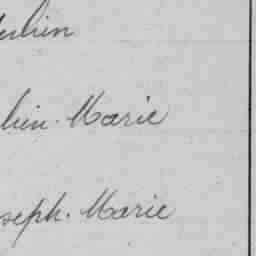 lien. Marie
seph. Marie